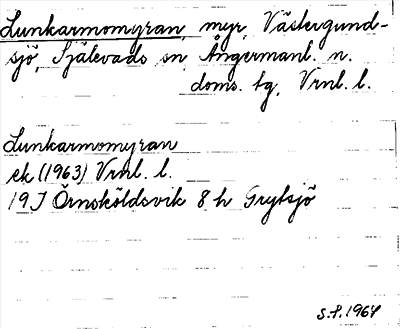 Lunkarmomyran, myr, Västergund-
sjö, Själevads sn, Ångermanl. n.
doms. tg, Vrnl. l.
Lunkarmomyran
ek (1963) Vrnl. l.
19 J Örnsköldsvik 8 h Grytsjö
S.P. 1964